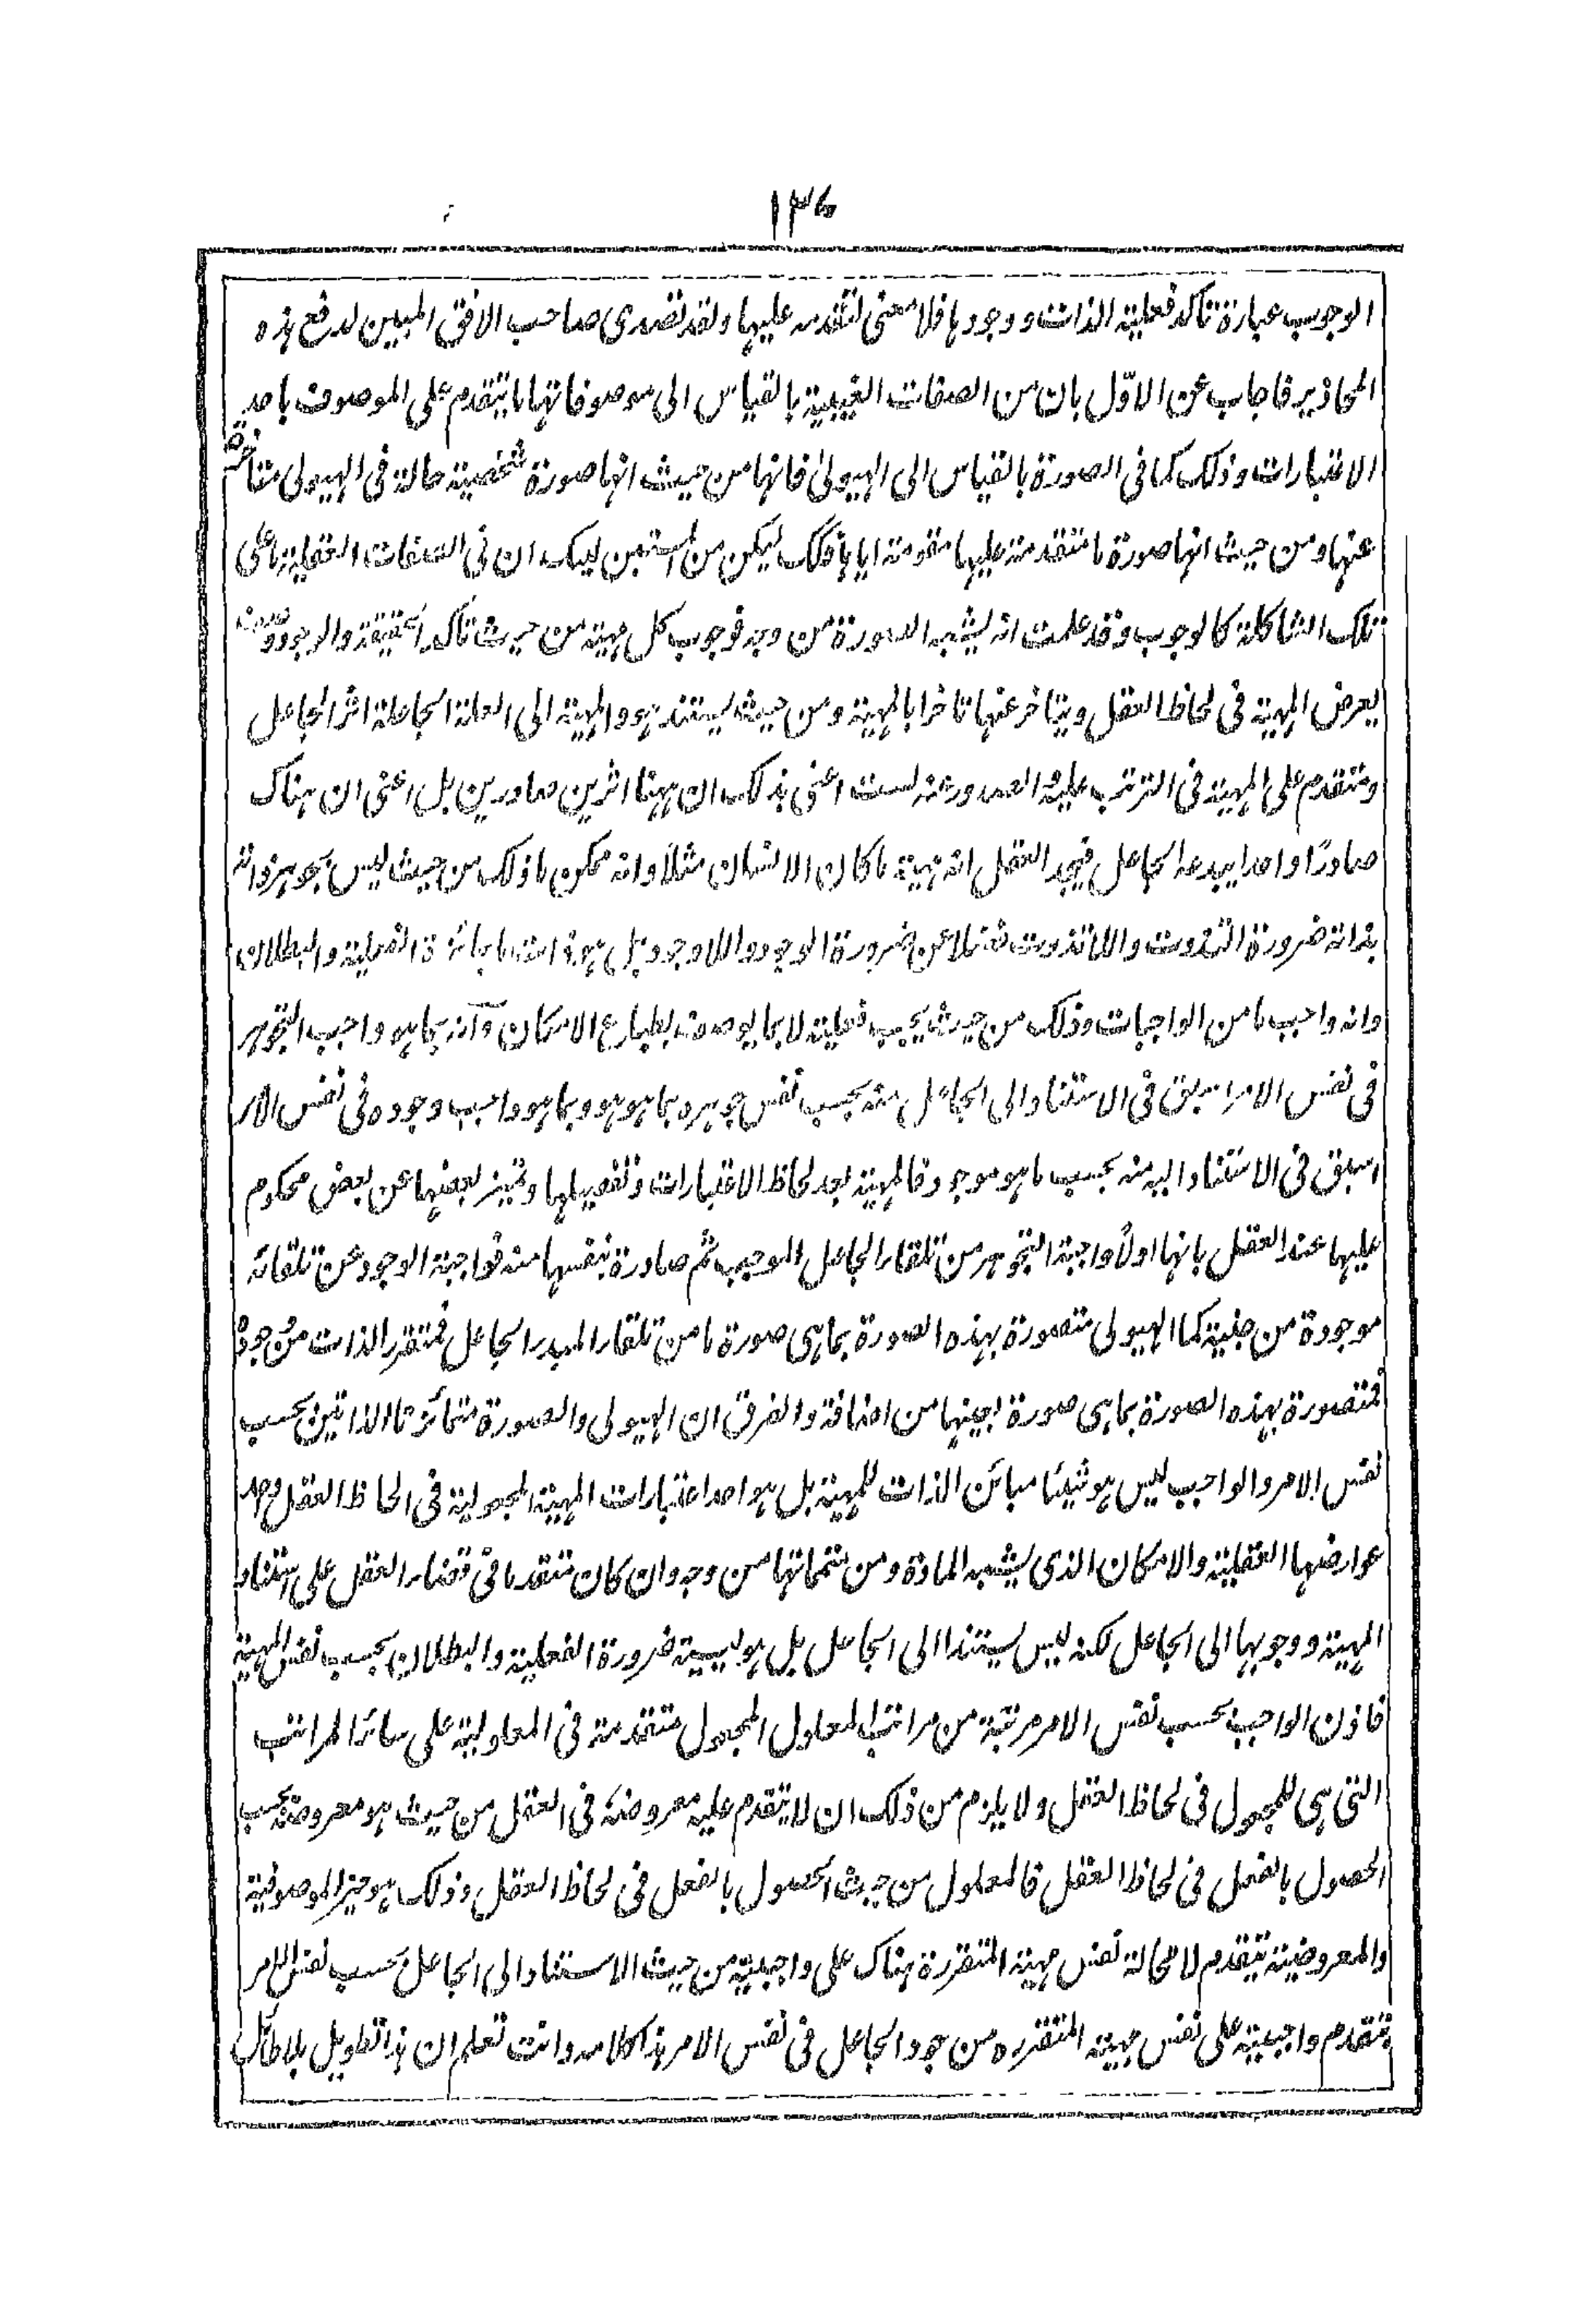 ١٣٦
الوجوب عبارة تاكد فعلية الذات ووجودها فلا معنى لتقدمه عليها ولقد تصدى صاحب الافق المبين لدفع هذه
المحاذير فاجاب عن الاوّل بان من الصفات العينية بالقياس الى موصوفاتها ما يتقدم على الموصوف باحد
الاعتبارات وذلك كما فى الصورة بالقياس الى الهيولىٰ فانها من حيث انها صورة شخصية حالة فى الهيولى متاخرة
عنها ومن حيث انها صورة ما متقدمة عليها مقومة اياها فليكن من المستبين لديك ان فى الصفات العقلية ما على
تلك الشاكلة كالوجوب وقد علمت انه يشبه الصورة من وجه فوجوب كل مهية من حيث تأكد الحقيقة والوجود
يعرض المهية فى لحاظ العقل ويتاخر عنها تاخرا بالمهية ومن حيث يستند هو والمهية الى العلة الجاعلة اثر الجاعل
ومتقدم على المهية فى الترتب عليه والصدور عنه لست اعنى بذلك ان ههنا اثرين صادرين بل اعنى ان هناك
صادرًا واحدا يبدعه الجاعل فيجد العقل انه مهية ما كالانسان مثلاً وانه ممكن ما وذلك من حيث ليس بجوهر ذاته
بذاته ضرورة التذوت واللاتذوت فضلا عن ضرورة الوجود واللاوجود بل هو ذات ما جائزة الفعلية والبطلان
وانه واجب ما من الواجبات وذلك من حيث يجب فعليته لا بما يوصف بطباع الامكان وآنه بما هو واجب التجوهر
فى نفس الامر اسبق فى الاستناد الى الجاعل منه بحسب نفس جوهره بما هو هو وبما هو واجب وجوده فى نفس الامر
اسبق فى الاستناد اليه منه بحسب ما هو موجود فالمهية بعد لحاظ الاعتبارات وتفصيلها وتميز بعضها عن بعض محكوم
عليها عند العقل بانها اولاً واجبة التجوهر من تلقاء الجاعل الموجب ثم صادرة بنفسها منه فواجبة الوجود عن تلقائه
موجودة من جنبته كما الهيولى متصورة بهذه الصورة بما هى صورة ما من تلقاء المبدء الجاعل فمتقرر الذات من جوده
فمتصورة بهذه الصورة بما هى صورة بعينها من اضافة والفرق ان الهيولى والصورة متمائزتا الذاتين بحسب
نفس الامر والواجب ليس هو شيئا مبائن الذات للمهية بل هو احد اعتبارات المهية المجعولية فى الحاظ العقل واحد
عوارضها العقلية والامكان الذى يشبه المادة ومن متماتها من وجه وان كان متقدما فى قضاء العقل على استناد
المهية ووجوبها الى الجاعل لكنه ليس يستند الى الجاعل بل هو ليسية ضرورة الفعلية والبطلان بحسب نفس المهية
فاذن الواجب بحسب نفس الامر مرتبة من مراتب المعلول المجعول متقدمة فى المعلولية على سائر المراتب
التى هى للمجعول فى لحاظ العقل ولا يلزم من ذلك ان لا يتقدم عليه معروضه فى العقل من حيث هو معروضه بحسب
الحصول بالفعل فى لحاظ العقل فالمعلول من حيث الحصول بالفعل فى لحاظ العقل وذلك هو حيز الموصوفية
والمعروضية يتقدم لا محالة نفس مهية المتقررة هناك على واجبيته من حيث الاستناد الى الجاعل بحسب نفس الامر
يتقدم واجبيته على نفس مهيته المتقرره من جود الجاعل فى نفس الامر هذا كلامه وانت تعلم ان هذا تطويل بلا طائل